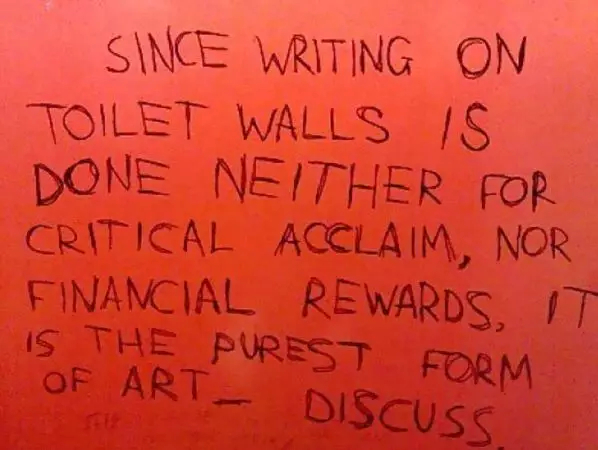 SINCE WRITING ON
TOILET WALLS IS
DONE NEITHER FOR
CRITICAL ACCLAIM, NOR
FINANCIAL REWARDS, IT
IS THE PUREST FORM
OF ART— DISCUSS.